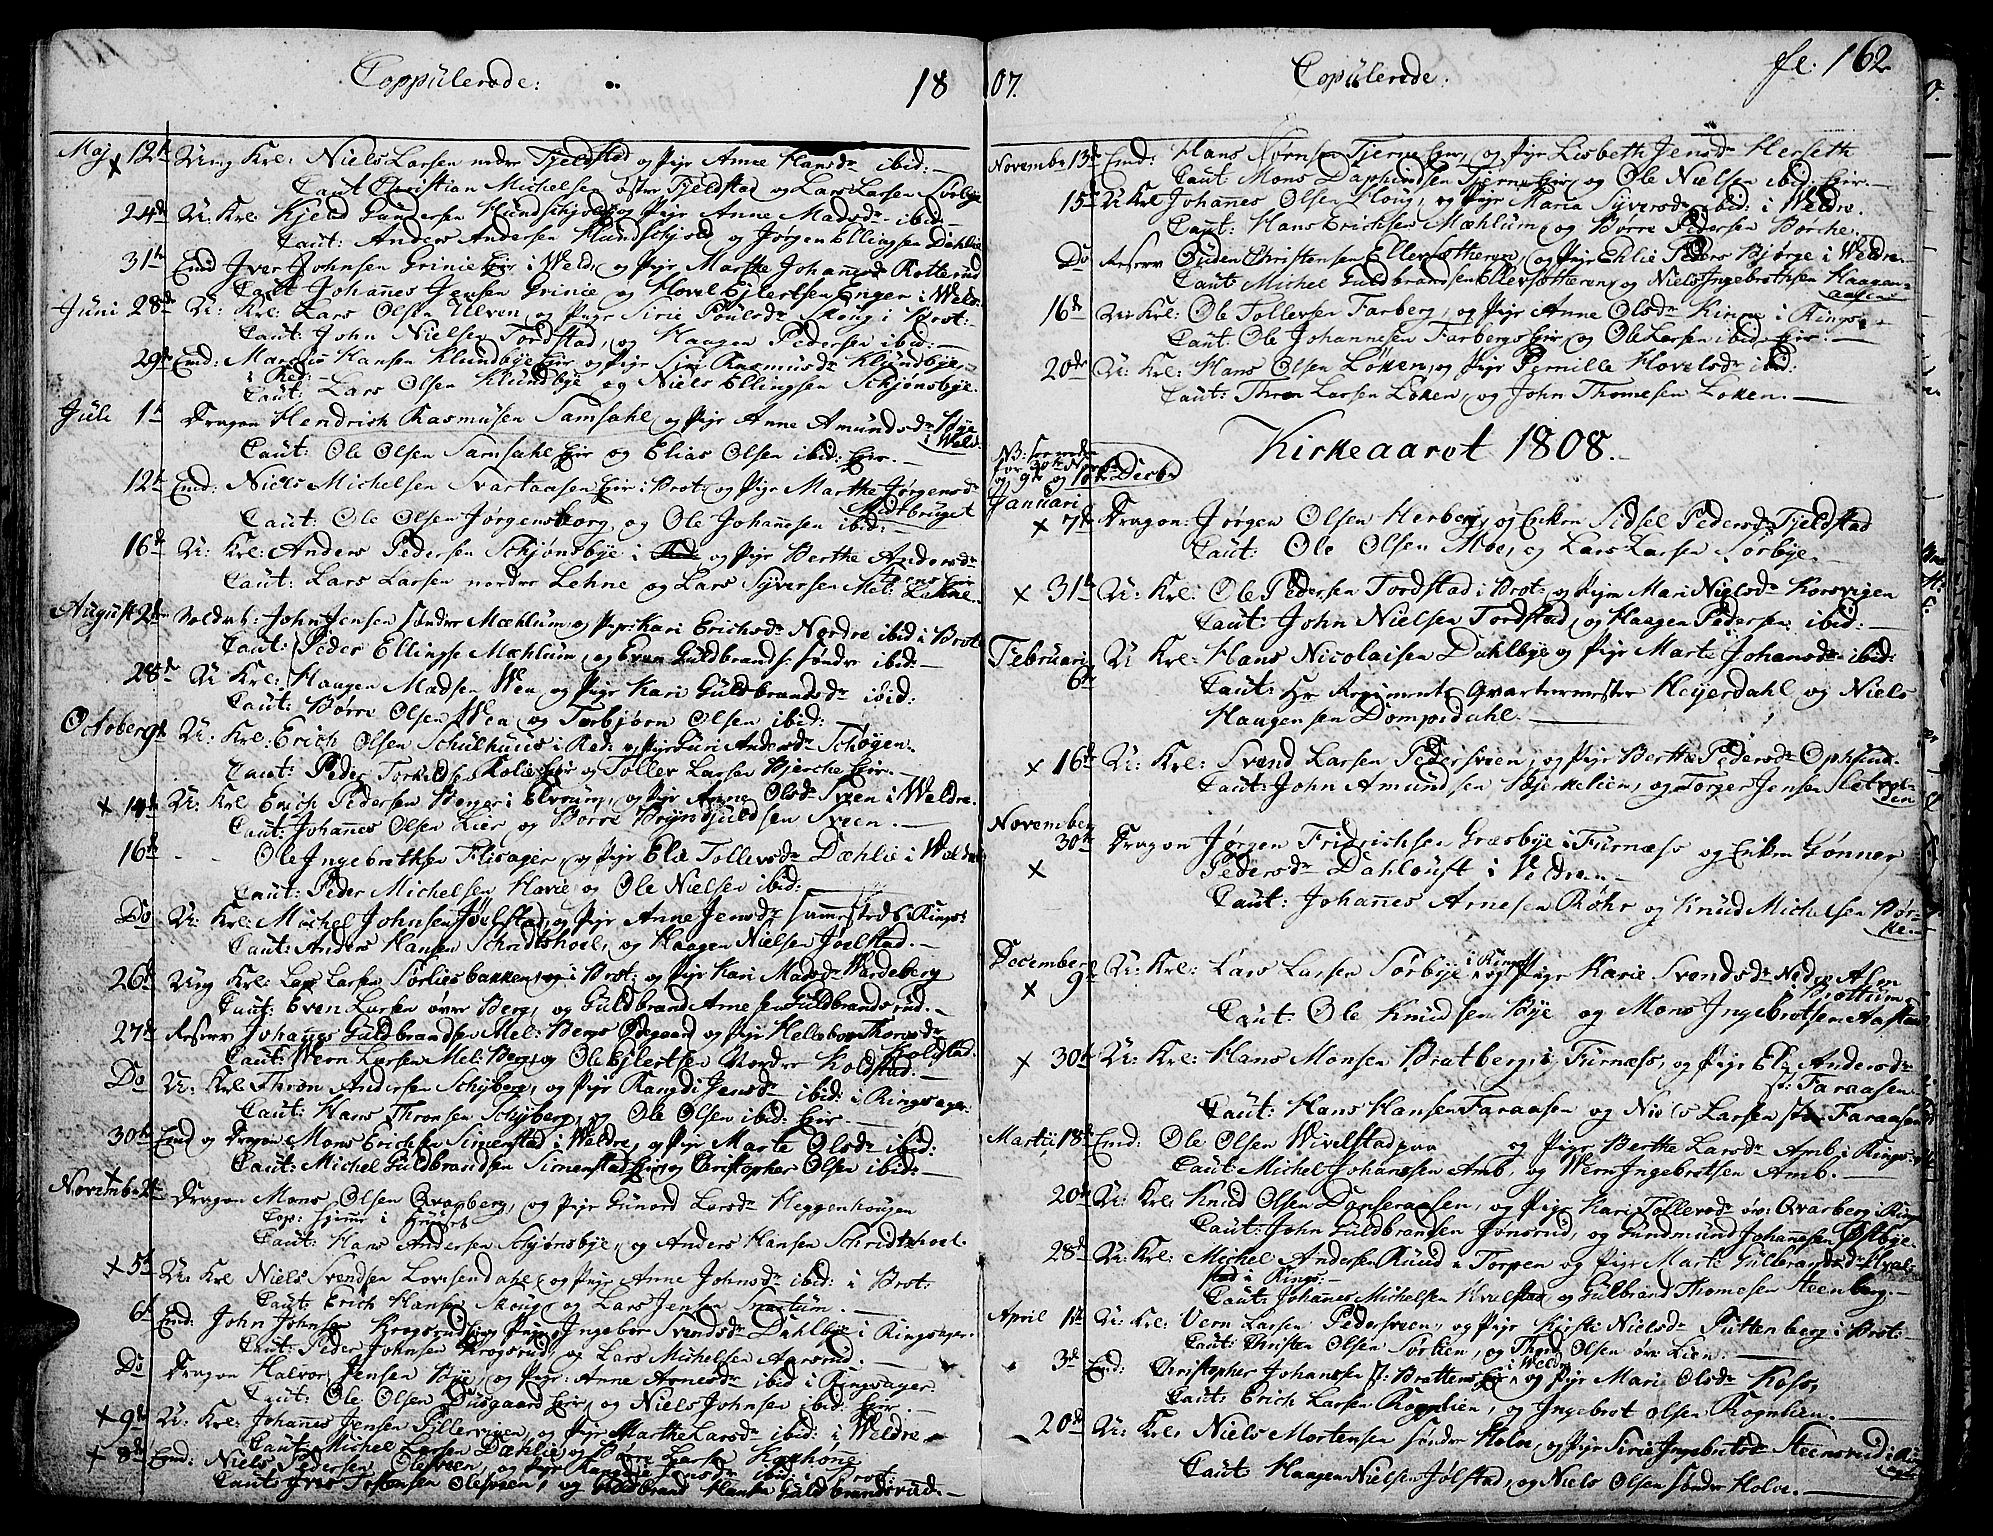 Coppulerede: 18
Maj 12te Ung Krl: Niels Larsen nedre Tjeldstad og Pige Anne Hansdr ibid:
Caut Christian Michelsen østre Tjeldstad og Lars Larsen Sørbye
24de U: Krl: Kjeld Gundersen Hundschjold og Pige Anne Madsdr ibid:
Caut: Anders Andersen Hundschjold og Jørgen Ellingsen Dahlie
31te Emd Iver Johnsen Grinie Eir i Weld: og Pige Marthe Johannesdr Kotterud
Caut Johannes Jensen Grinie og Hovel Ejlertsen Enger i Weld:
Juni 28de U: Krl: Lars Olsen Ulven og Pige Sirie Poulsdr Skoug i Brot:
Caut: John Nielsen Tordstad, og Haagen Pedersen ibid:
29de Emd: Marcus Hansen Klundbye Eir og Pige Siri Rasmusdr Klundbye,
i Red:
Caut: Lars Olsen Klundbye og Niels Ellingsen Schjønsbye.
Juli 1te Dragon Hendrich Rasmusen Samsahl og Pige Anne Amundsdr Bye
i Weld:
Caut: Ole Olsen Samsahl Eir og Elias Olsen ibid: Eir.
12te Emd: Niels Michelsen Svartaasen Eir i Brot og Pige Marthe Jørgensdr
Midtbruget
Caut: Ole Olsen Jørgensborg, og Ole Johannesen ibid:
16de U: Krl: Anders Pedersen Schjønsbye i Red og Pige Berthe Andersdr
Caut: Lars Larsen nordre Lehne og Lars Syversen Mel: Lehne.
August 2den Soldat: John Jensen søndre Mæhlum og Pige Kari Erichsdr Nordre ibid i Brot
Caut: Peder Ellingse Mæhlum, og Even Guldbrands: søndre ibid:
28de U Krl: Haagen Madsen Wea og Pige Kari Guldbrandsdr ibid:
Caut: Børre Olsen Wea og Torbjørn Olsen ibid:
October 9de U: Krl: Erich Olsen Schulhuus i Red: og Pige Guri Andersdr Schøyen
Caut: Peder Torkildsen Kolie Eir og Tollev Larsen Bjerche Eir.
x 14de U: Krl Erich Pedersen Berger i Elvrum, og Pige Anne Olsdr Sveen i Weldre.
Caut: Johannes Olsen Lier og Børre Bryndjuldsen Sveen.
16de Ole Ingebrethsen Flisager, og Pige Elie Tollevsdr Dæhlie i Weldre
Caut: Peder Michelsen Havie og Ole Nielsen ibid:
Do U: Krl: Michel Johnsen Jølstad, og Pige Anne Jensdr sammesteds Rings:
Caut: Anders Hansen Schridtshoel, og Haagen Nielsen Jølstad.
26de Ung Krl: Lars Larsen Sørliesbakken, i Brot: og Pige Kari Madsdr Wardeberg
Caut: Even Larsen øvre Berg, og Guldbrand Arnesen Guldbrandsrud.
27de Reserv Johannes Guldbrandsen Mel: Bergs Ødegaard og Pige Helleborr Thoresdr
Koldstad.
Caut: Wern Larsen Mel: Berg, og Ole Ejlertsen Nordre Koldstad.
Do U: Krl Thron Andersen Schyberg, og Pige Rangdi Jensdr ibid: i Ringsager:
Caut: Hans Thronsen Schyberg, og Ole Olsen ibid: Eir.
30te Emd og Dragon Mons Erichsen Simenstad i Weldre, og Pige Marte Olsdr ibid:
Caut: Michel Guldbrandsen Simenstad Eir, og Christopher Olsen ibid:
November 2de Dragon Mons Olsen Qvarberg, og Pige Gunord Larsdr Heggenhougen
Cop: hjemme i Huuset
Caut: Hans Andersen Schjønsbye, og Anders Hansen Schridtshoel.
x 5te U: Krl Niels Svendsen Lovisendahl og Pige Anne Johnsdr ibid: i Brot:
Caut: Erich Hansen Skoug, og Lars Jensen Snartum.
6te Emd: John Johnsen Krogsrud og Pige Ingebor Svendsdr Dahlbye i Ringsager.
Caut: Peder Johnsen Krogsrud, og Lars Michelsen Aarsrud.
Do Dragon Halvor Jensen Bye, og Pige: Anne Arnesdr ibid i Ringsager.
Caut: Ole Olsen Dusgaard Eir, og Niels Johnsen ibid: Eir.
x 9de U: Krl: Johannes Jensen Pillerviigen, og Pige Marthe Larsdr ibid: i Weldre
Caut: Michel Larsen Dæhlie, og Børre Larsen
x 8de Emd: Niels Pedersen Olesveen, og Pige Jensdr ibid: i Brot:
Caut: Iver Torstensen Olesveen, og Guldbrand Hansen Guldbrandsrud.
07. Copulerede: fl: 162
Novembr 13de Emd: Hans Jørnsen Tjerne Eir, og Pige Lisbeth Jensdr Herseth
Caut: Mons Daphindsen Tjerne Eir, og Ole Nielsen ibid: Eir.
15de U Krl Johanes Olsen Houg, og Pige Maria Syversdr ibid: i Weldre.
Caut: Hans Erichsen Mæhlum, og Børre Pedersen Borche.
Do Reserv Guden Christensen Ellevsætteren, og Pige Ehlie Peders: Bjørge i Weldre.
Caut Michel Guldbrandsen Ellevsætteren, og Niels Ingebrethsen Haagen-
aasen
16de U: Krl: Ole Tollevsen Farberg, og Pige Anne Olsdr Kinne i Rings:
Caut: Ole Johannesen Farberg Eir, og Ole Larsen ibid: Eir.
20de U: Krl: Hans Olsen Løken, og Pige Pernille Hovelsdr ibid:
Caut: Thron Larsen Løken, og John Thomesen Løken.
Kirkeaaret 1808.
NB: see nede
for 30te Nov:
og 9de og 10de Decbr
Januari
x 7de Dragon: Jørgen Olsen Herberg, og Enken Sidsel Pedersdr Tjeldstad
Caut: Ole Olsen Moe, og Lars Larsen Sørbye.
x 31te U: Krl: Ole Pedersen Tordstad i Brot: og Pige Mari Nielsdr Korsvigen
Caut: John Nielsen Tordstad, og Haagen Pedersen ibid:
Februarii
6te U Krl: Hans Nicolaisen Dahlbye og Pige Marte Johansdr ibid:
Caut: Hr Regiments Qvarteermester Heyerdahl og Niels
Haagensen Dompidahl.
x 16de U: Krl: Svend Larsen Pedersveen, og Pige Berthe Pedersdr Ophuus.
Caut: John Amundsen Bjerkelien, og Torger Jensen Sletvol-
den
November
30te Dragon Jørgen Fridrichsen Græsbye i Furnæss og Enken Gønner
x Pedersdr Dahloust i Veldren.
Caut: Johannes Arnesen Røhr og Knud Michelsen Bør-
ke
December
x 9de U: Krl: Lars Larsen Sørbye i Rings: og Pige Karie Svendsdr Neden Alm
i Brøttum
Caut: Ole Knudsen Bye og Mons Ingebretsen Aastad
x 30te U: Krl: Hans Monsen Bratberg, i Furnæss, og Pige Eli Andersdr
s: Faraasen
Caut: Hans Hansen Faraasen og Niels Larsen søn Faraasen
Martii 18de Emd: Ole Olsen Wivelstad og Pige Berthe Larsdr Amb i Rings:
Caut: Michel Johannesen Amb, og Wern Ingebretsen Amb.
20de U: Krl: Knud Olsen Danseraasen, og Pige Kari Tollevsdr øv: Qvarberg i Rings
Caut: John Guldbrandsen Jønsrud, og Gundmund Johannesen Olsbye.
28de U: Krl: Michel Andersen Ruud i Torpen og Pige Marte Gulbrandsdr Hval-
stad i Rings:
Caut: Johannes Michelsen Hvalstad og Gulbrand Thomesen Steenberg.
April 1te U: Krl: Vern Larsen Pedersveen, og Pige Kirsti Nielsdr Puttenberg i Brot:
Caut: Christen Olsen Sørlien, og Thord Olsen øv: Lien.
3de Emd: Christopher Johansen s: Brattens Eir i Weldre og Pige Marie Olsdr Koss,
Caut: Erich Larsen Rognlien, og Ingebrot Olsen Rognlien.
20de U: Krl: Niels Mortensen søndre Holve, og Pige Sirie Ingebretsdr Steensrud i
Caut: Haagen Nielsen Jølstad, og Niels Olsen søndre Holve.